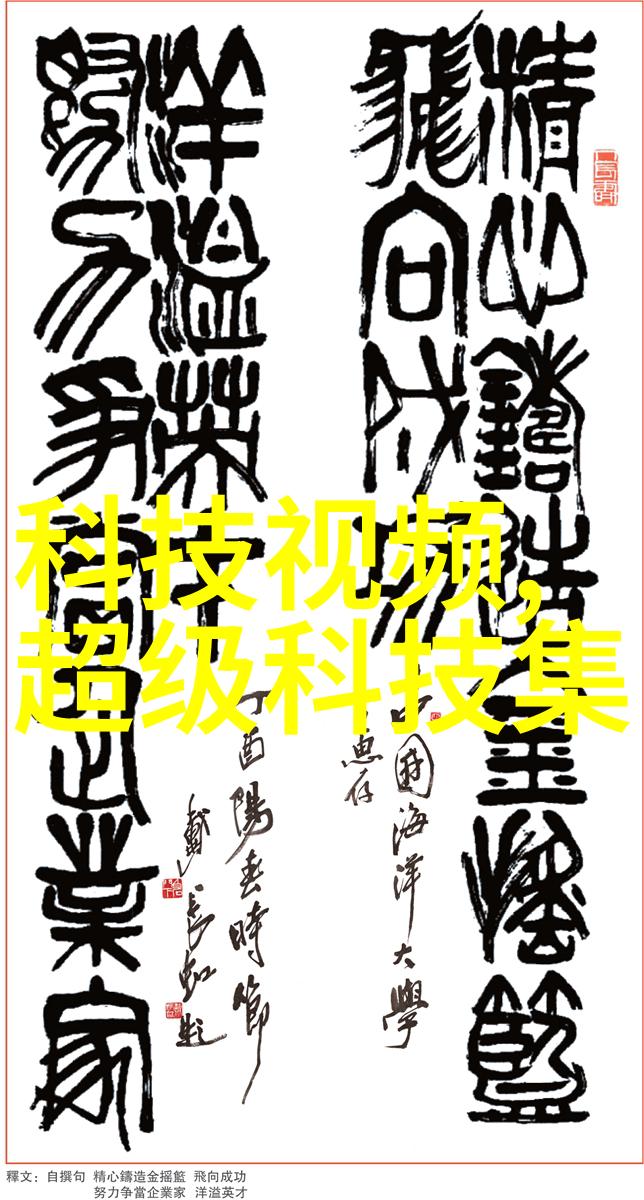 精心鑄造金摇籃
飛向成功
中國海洋大學
惠存
洋溢英才
努力争當企業家
丁酉陽春時節
戴長虹題
科技视频,
超级科技集
釋文：自撰句 精心鑄造金摇籃 飛向成功
努力争當企業家 洋溢英才